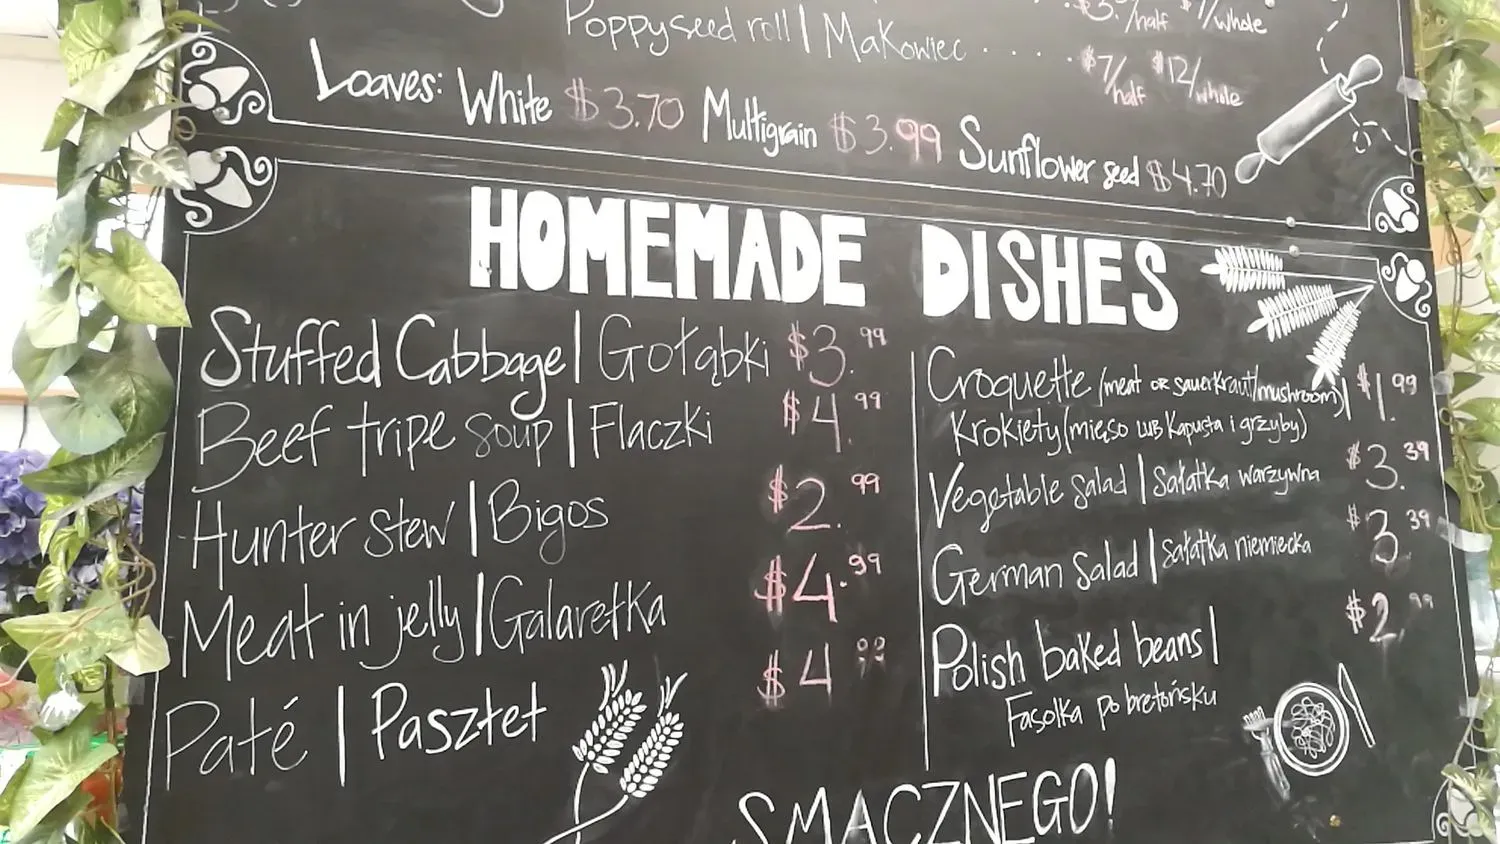 $3./half $7/whole
Poppyseed roll | Makowiec . . . . . $7/half $12/whole
Loaves: White $3.70 Multigrain $3.99 Sunflower seed $4.70
HOMEMADE DISHES
Stuffed Cabbage | Gołąbki $3.99
Beef tripe soup | Flaczki $4.99
Hunter stew | Bigos $2.99
Meat in jelly | Galaretka $4.99
Paté | Pasztet $4
Croquette (meat or sauerkraut/mushroom) | $1.99
Krokiety (mięso lub kapusta i grzyby)
Vegetable salad | Sałatka warzywna $3.39
German salad | Sałatka niemiecka $3.39
Polish baked beans | $2.99
Fasolka po bretońsku
SMACZNEGO!